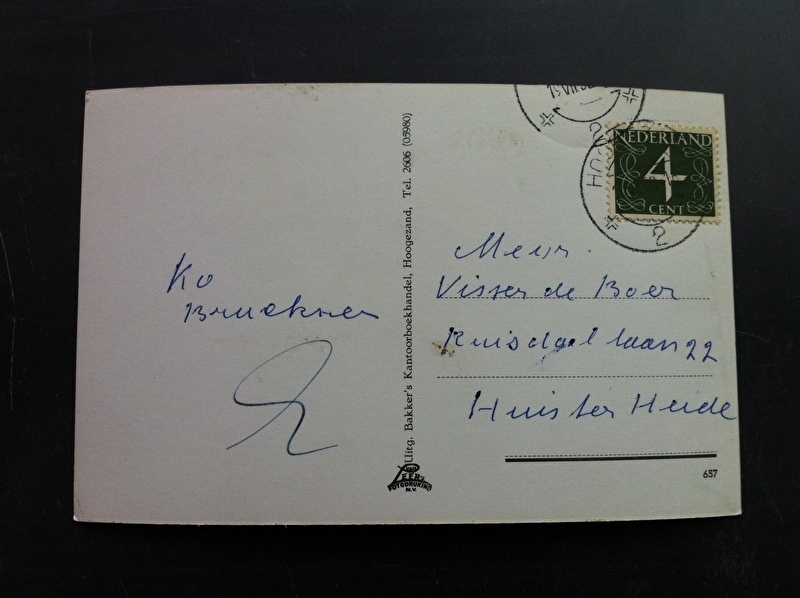 Ko
Bruckner
Uitg. Bakker's Kantoorboekhandel, Hoogezand, Tel. 2606 (05980)
FOTODRUKIND
N.V.
NEDERLAND
4
CENT
2
Mevr.
Visser de Boer
Ruisdael laan 22
Huis ter Heide
657